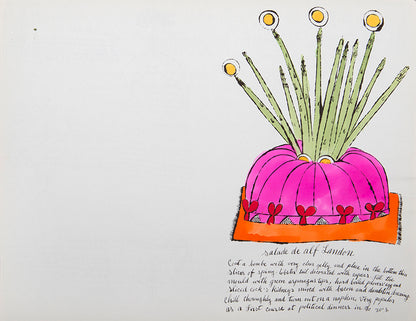 salade de alf Landon
Coat a bombe with very clear jelly and place in the bottom thin
slices of spiny lobster tail decorated with capers. fill the
mould with green asparagus tips, hard boiled plover's eggs and
sliced cock's kidneys mixed with bacon and dandelion dressing
Chill thoroughly and turn out on a napkin. Very popular
as a first course at political dinners in the 30's